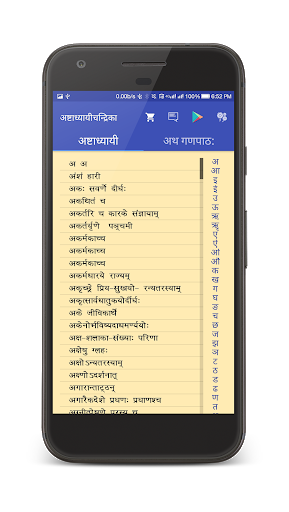 0.00b/s 100% 6:52 PM
अष्टाध्यायीचन्द्रिका
अष्टाध्यायी
अथ गणपाठः
अ अ
अंशं हारी
अकः सवर्णे दीर्घः
अकथितं च
अकर्तरि च कारके संज्ञायाम्
अकर्तर्यृणे पञ्चमी
अकर्मकाच्च
अकर्मकाच्च
अकर्मकाच्च
अकर्मधारये राज्यम्
अकृच्छ्रे प्रिय-सुखयो- रन्यतरस्याम्
अकृत्सार्वधातुकयोर्दीर्घः
अके जीविकार्थे
अकेनोर्भविष्यदाधमर्ण्ययोः
अक्ष-शलाका-संख्याः परिणा
अक्षेषु ग्लहः
अक्षोऽन्यतरस्याम्
अक्ष्णोऽदर्शनात्
अगारान्ताट्ठन्
अगारैकदेशे प्रघणः प्रघाणश्च
अ
आ
इ
ई
उ
ऊ
ऋ
ॠ
ए
ऐ
ओ
औ
क
ख
ग
घ
ङ
च
छ
ज
झ
ञ
ट
ठ
ड
ढ
ण
त